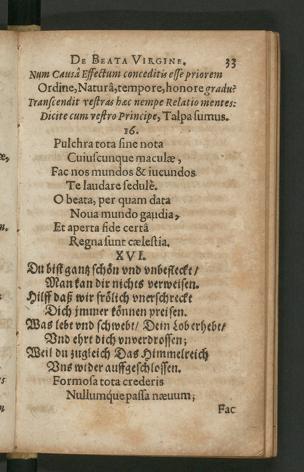 DE BEATA VIRGINE. 33
Num Causâ Effectum conceditis esse priorem
Ordine, Naturâ, tempore, honore gradu?
Transcendit vestras hæc nempe Relatio mentes:
Dicite cum vestro Principe, Talpa sumus.
16.
Pulchra tota sine nota
Cuiuscunque maculæ,
Fac nos mundos & iucundos
Te laudare sedulè.
O beata, per quam data
Noua mundo gaudia,
Et aperta fide certâ
Regna sunt cælestia.
XVI.
Du bist gantz schön vnd vnbefleckt/
Man kan dir nichts verweisen.
Hilff daß wir frölich vnerschreckt
Dich jmmer können preisen.
Was lebt vnd schwebt/ Dein Lob erhebt/
Vnd ehrt dich vnverdrossen;
Weil du zugleich Das Himmelreich
Vns wider auffgeschlossen.
Formosa tota crederis
Nullumque passa næuum;
Fac